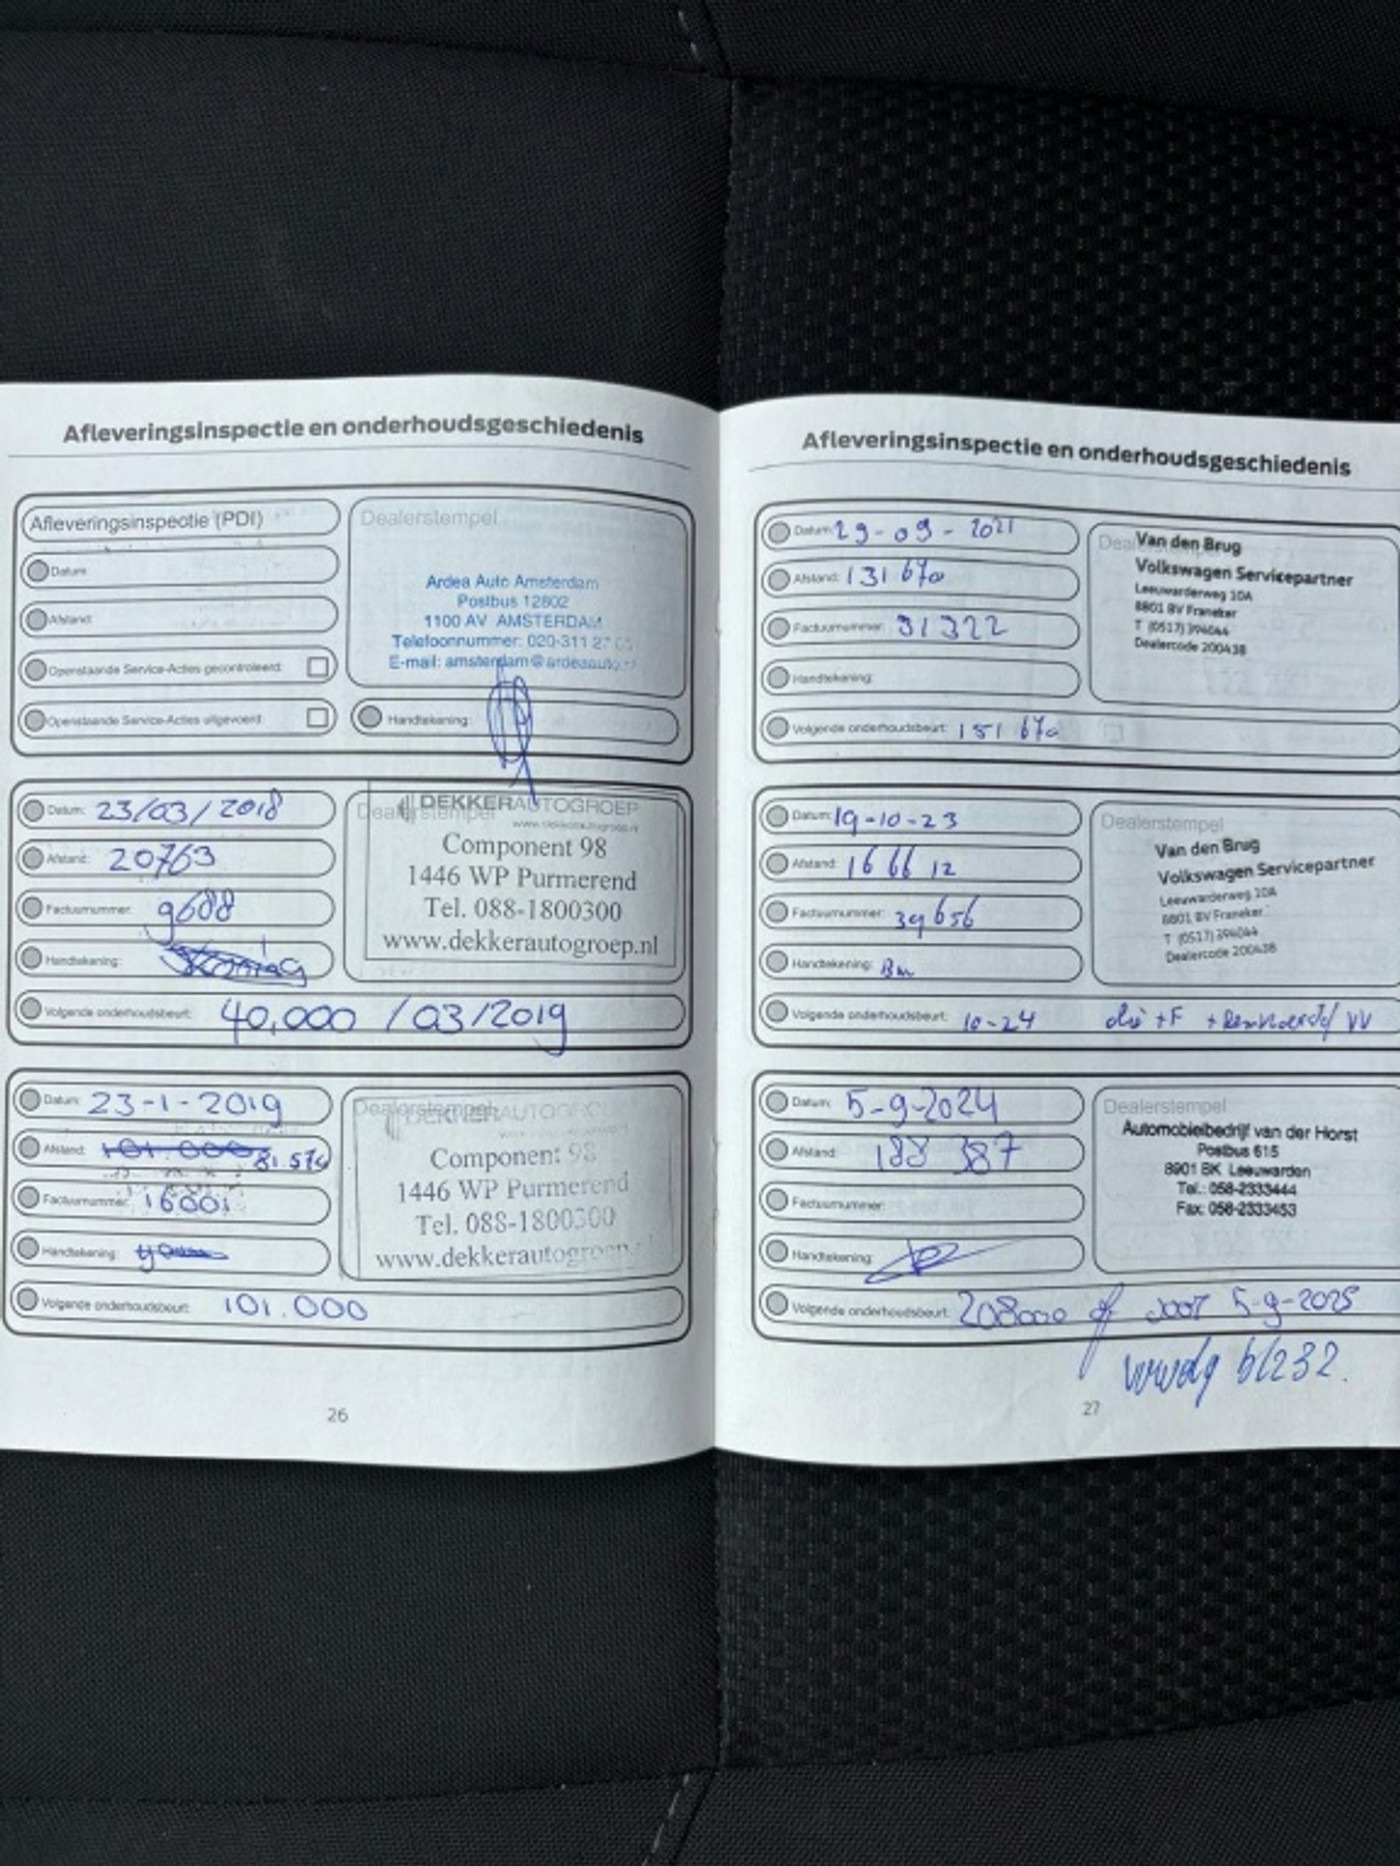 Afleveringsinspectie en onderhoudsgeschiedenis
Afleveringsinspectie (PDI)
Datum:
Afstand:
Openstaande Service-Acties gecontroleerd:
Openstaande Service-Acties uitgevoerd:
Dealerstempel
Ardea Auto Amsterdam
Postbus 12802
1100 AV AMSTERDAM
Telefoonnummer: 020-311 27
E-mail: amsterdam@ardeaauto.
Handtekening:
Datum: 23/03/2018
Afstand: 20763
Factuurnummer: 9688
Handtekening:
Volgende onderhoudsbeurt: 40,000 /03/2019
Dealerstempel
DEKKERAUTOGROEP
www.dekkerautogroep.nl
Component 98
1446 WP Purmerend
Tel. 088-1800300
www.dekkerautogroep.nl
Datum: 23-1-2019
Afstand: 101.000 81.574
Factuurnummer: 16001
Handtekening:
Volgende onderhoudsbeurt: 101.000
Dealerstempel
DEKKERAUTOGRO
Component 98
1446 WP Purmerend
Tel. 088-1800300
www.dekkerautogroep.
26
Afleveringsinspectie en onderhoudsgeschiedenis
Datum: 29-09-2021
Afstand: 131 670
Factuurnummer: 31322
Handtekening:
Volgende onderhoudsbeurt: 151 670
Van den Brug
Volkswagen Servicepartner
Leeuwarderweg 10A
8801 BV Franeker
T (0517) 394044
Dealercode 200438
Datum: 19-10-23
Afstand: 16 66 12
Factuurnummer: 39656
Handtekening: Bm
Volgende onderhoudsbeurt: 10-24 olie +F
Dealerstempel
Van den Brug
Volkswagen Servicepartner
Leeuwarderweg 10A
8801 BV Franeker
T (0517) 394044
Dealercode 200438
Datum: 5-9-2024
Afstand: 188 387
Factuurnummer:
Handtekening:
Volgende onderhoudsbeurt: 208000 of voor 5-9-2025
Dealerstempel
Automobielbedrijf van der Horst
Postbus 615
8901 BK Leeuwarden
Tel.: 058-2333444
Fax: 058-2333453
27